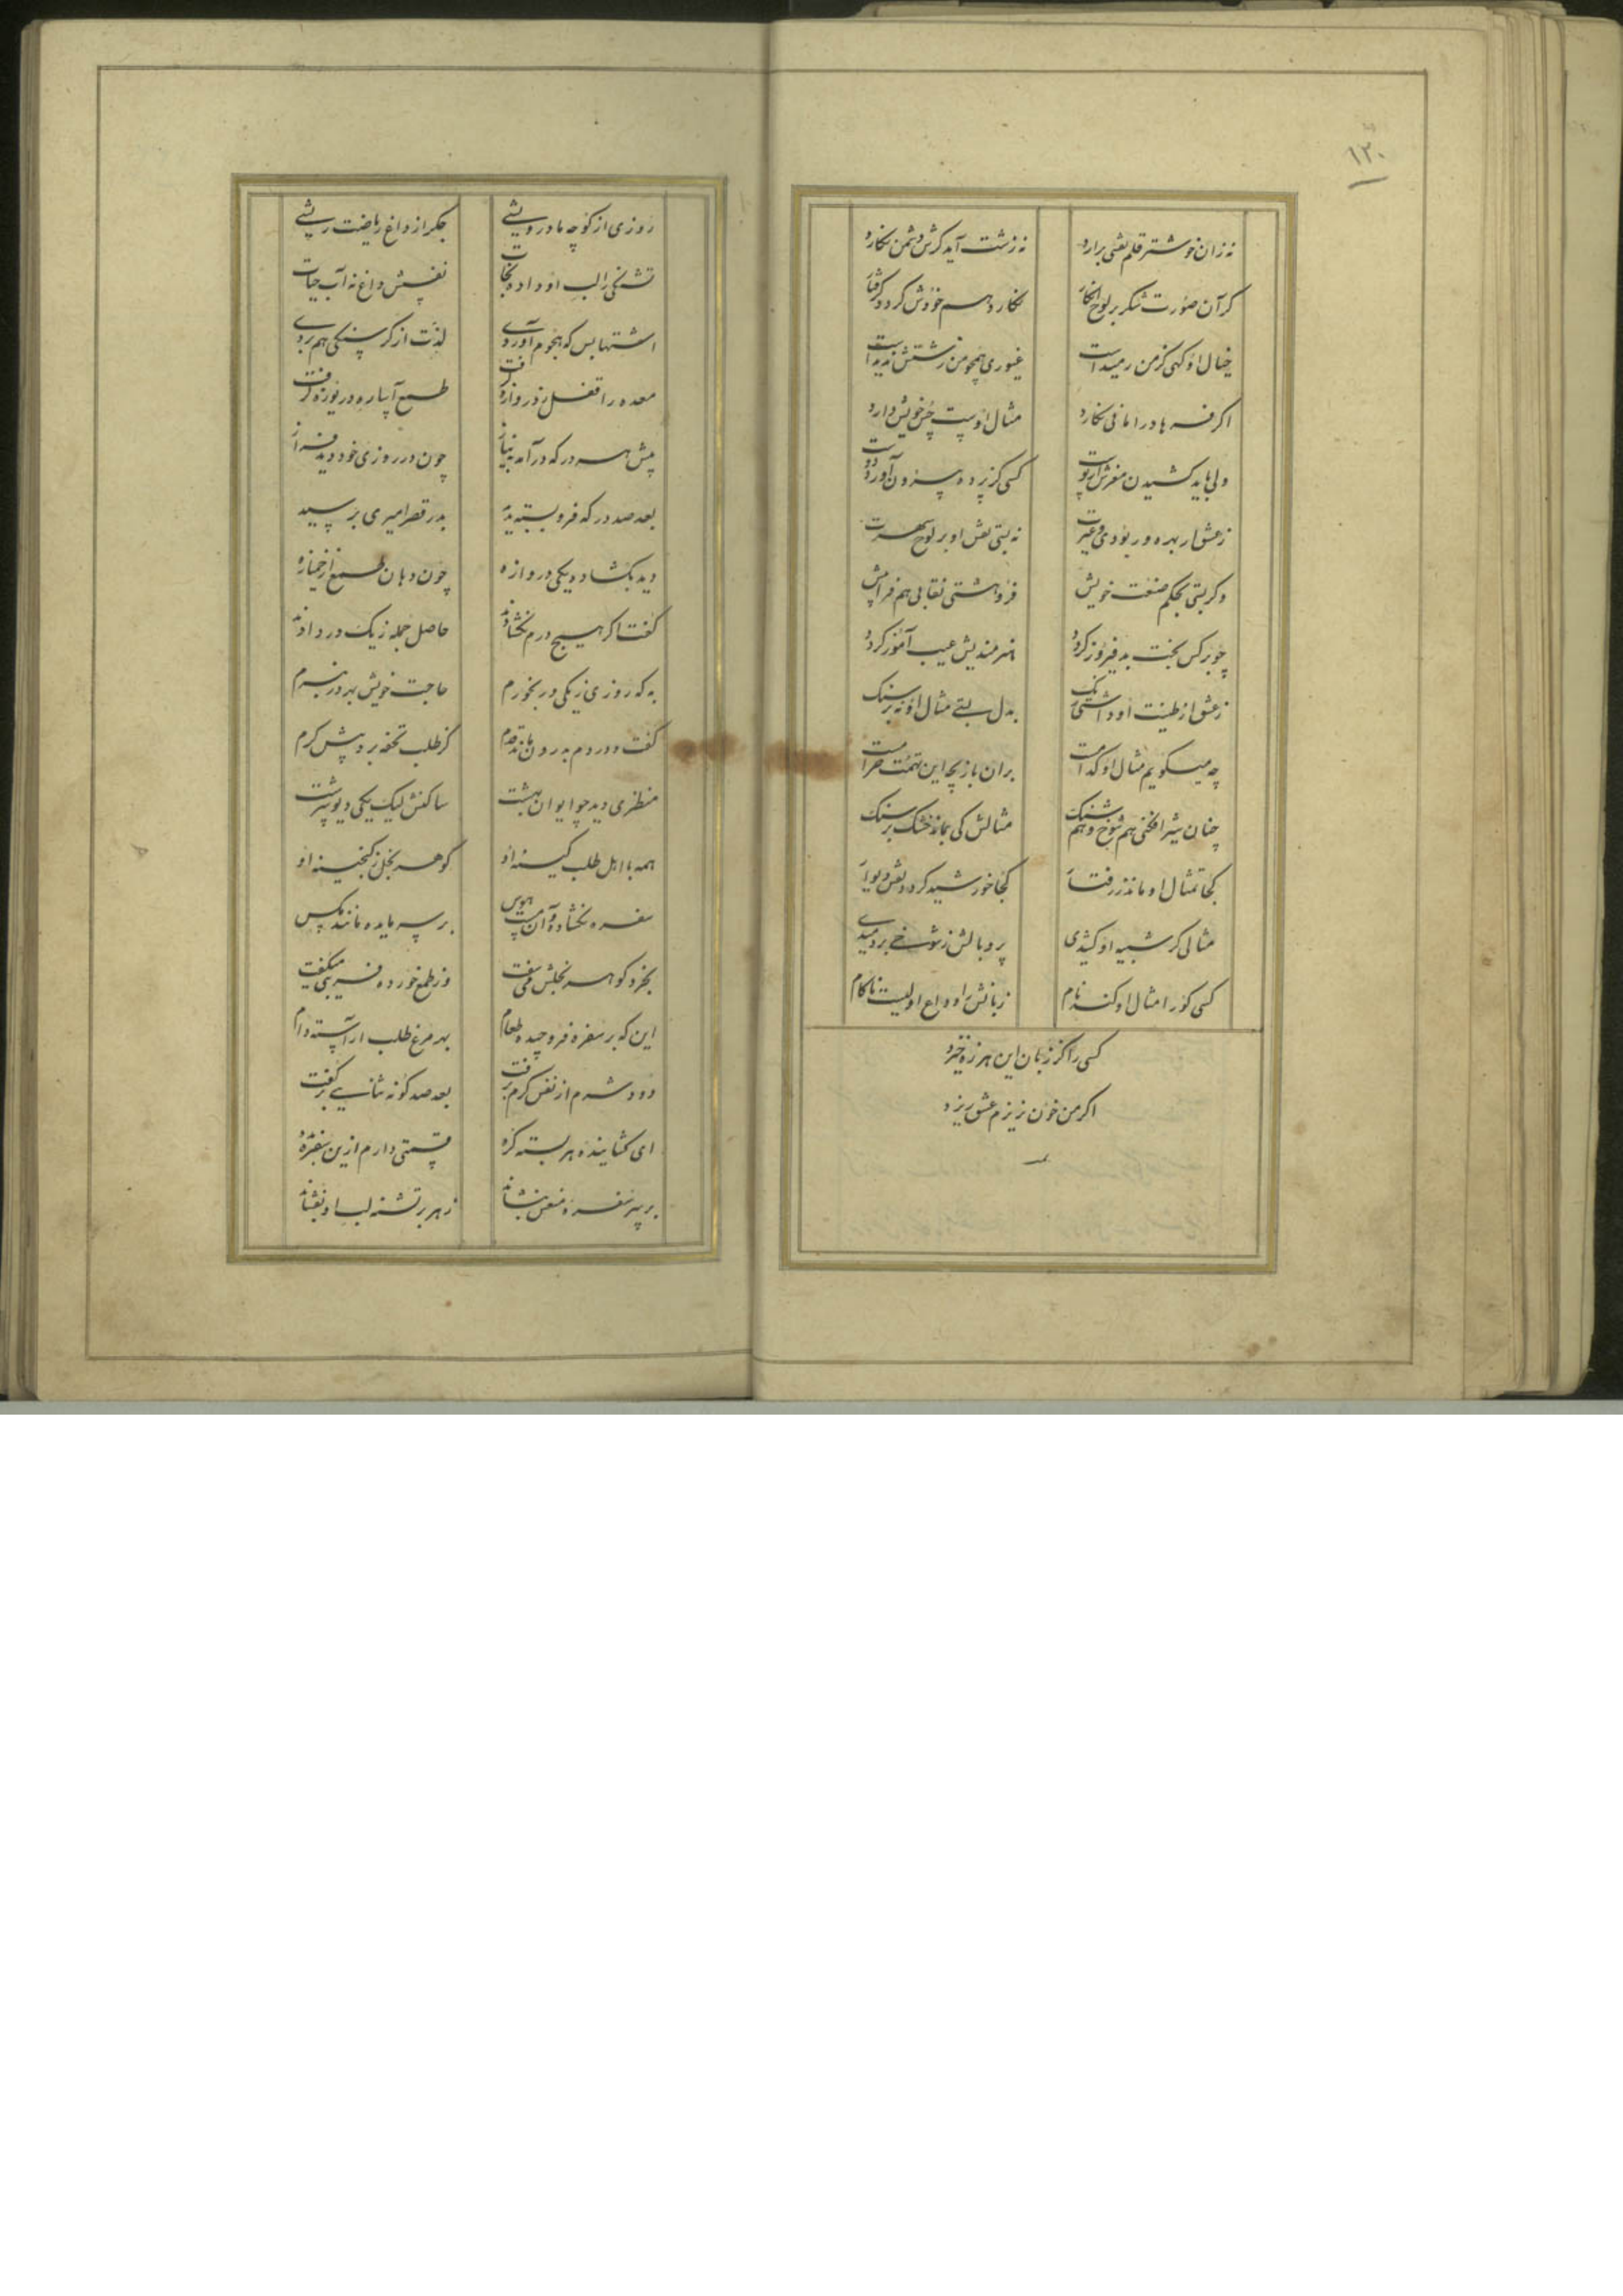 ۱۳۰
نه زان خوشتر قلم نقشی برارد نه زشت آید کرش دشمن نکارد
کر آن صورت شکر بر لوح انکار نکارد هم خودش کردد کرفتار
خیال او کهی کز من رمیداست غیوری همچو من زشتش ندیداست
اکر فرهاد را مانی نکارد مثال اوست حسن خویش دارد
ولی باید کشیدن مغزش از پوست کسی کز پرده بیرون آورد دوست
ز عشق ار بهره ور بودی و غیرت نه بستی نقش او بر لوح شهرت
وکر بستی بحکم صنعت خویش فروهشتی نقابی هم فراپیش
چو بر کس بخت بد فیروز کردد هنرمندیش عیب آموز کردد
ز عشق از طینت او داشتی رنک به دل بستی مثال او نه بر سنک
چه میکویم مثال او کدامست بران بازیچه این تهمت حرامست
چنان شیرافکنی هم شوخ و هم شنک مثالش کی بماند خشک بر سنک
کجا تمثال او ماند ز رفتار کجا خورشید کردد نقش دیوار
مثالی کر شبیه او کشیدی پر و بالش ز شوخی بردمیدی
کسی کورا مثال او کند نام زبانش را وداع اولیست ناکام
کسی را کز زبان این هرزه خیزد
اکر من خون نریزم عشق ریزد
روزی از کوچه ما درویشی جکر از داغ ریاضت ریشی
تشنکی را لب او داد نجات نفسش داغ نه آب حیات
اشتها بس که هجوم آوردی لذت از کرسنکی هم بردی
معده را قفل ز دروازه کرفت طمع آیاره دریوزه کرفت
پیش هر در که درآمد به نیاز چون در روزی خود دید فراز
بعد صد در که فرو بسته بدید بدر قصر امیری برسید
دید بکشاده یکی دروازه چون دهان طمع از خمیازه
کفت اکر هیچ درم نکشادند حاصل جمله ز یک در دادند
به که روزی ز یکی در بخورم حاجت خویش بهر در نبرم
کفت و در دم به درون ماند قدم کز طلب تحفه برد پیش کرم
منظری دید چو ایوان بهشت ساکنش لیک یکی دیو سرشت
همه با اهل طلب کینه او کوهر بخل ز کنجینه او
سفره بکشاده و آن مست هوس بر سر مایده مانند مکس
بخرد کوهر بخلش می سفت وز طمع خورده فریبی میکفت
این که بر سفره فرو چیده طعام بهر مرغ طلب آراسته دام
دود شرم از نفس کرم برفت بعد صد کونه ثنایی برکفت
ای کشاینده هر بسته کره قسمتی دارم ازین سفره بده
بر سر سفره منعم بنشاند زهر بر تشنه لب او بفشاند